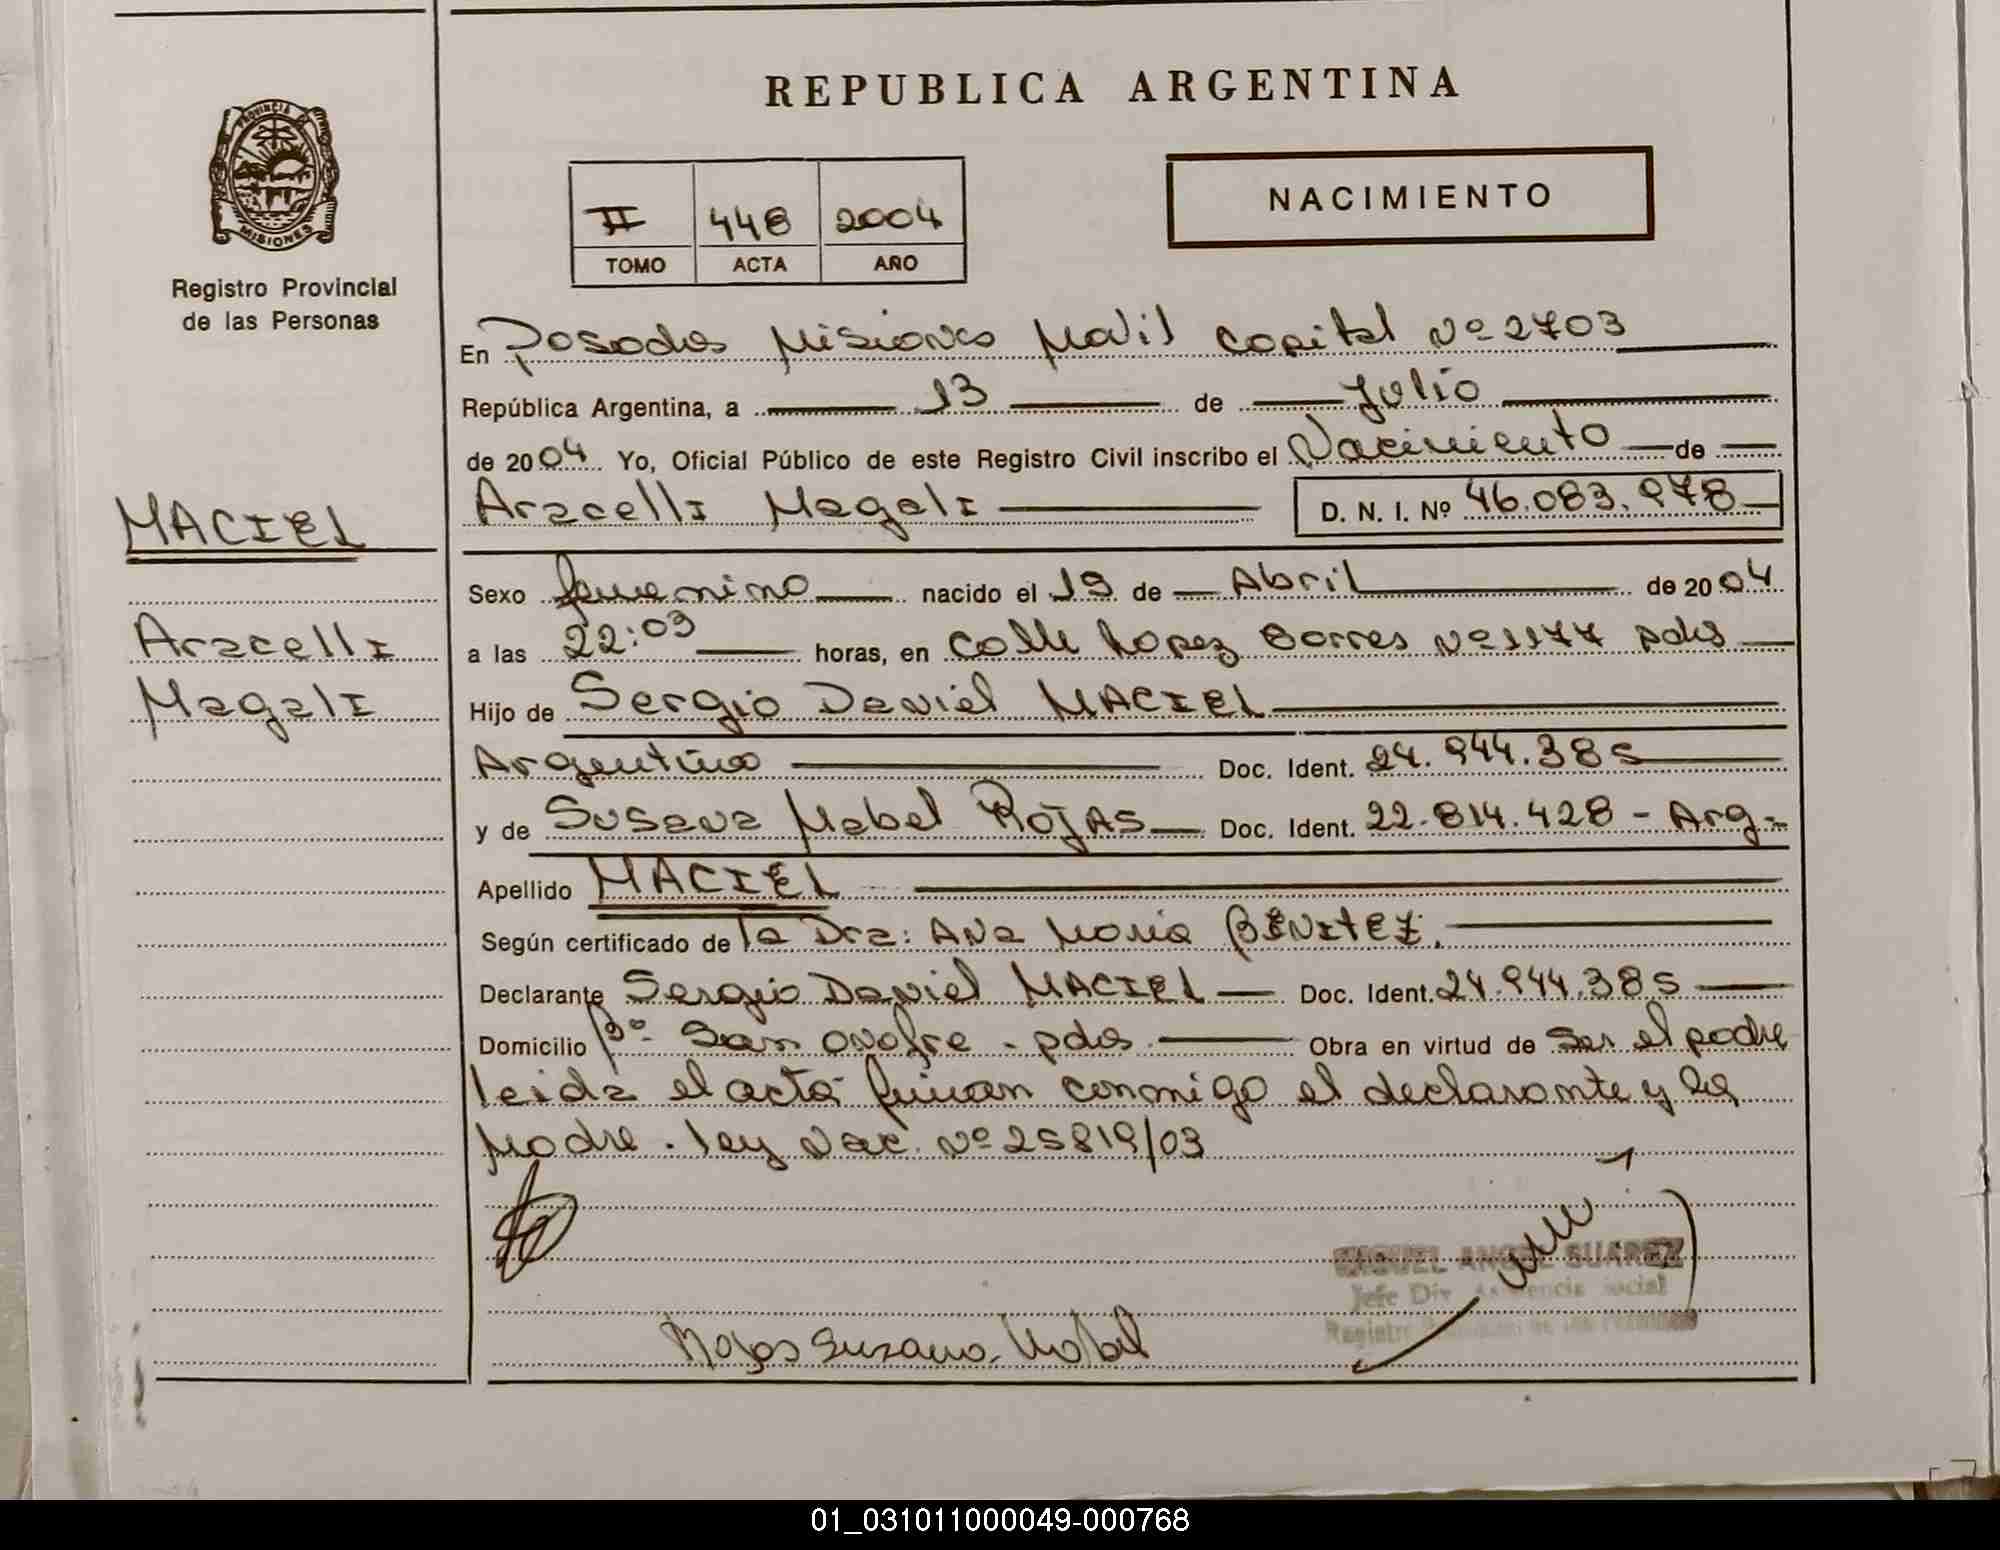 REPUBLICA ARGENTINA
PROVINCIA D
MISIONES
Registro Provincial
de las Personas
II 448 2004
TOMO ACTA AÑO
NACIMIENTO
En Posadas Misiones Movil Capital Nº 2703
República Argentina, a 13 de Julio
de 2004 Yo, Oficial Público de este Registro Civil inscribo el Nacimiento de
MACIEL
Aracelli Magali D. N. I. Nº 46.083.978
Sexo femenino nacido el 19 de Abril de 2004
Aracelli
a las 22:03 horas, en Calle Lopez Torres Nº 1177 pdas
Magali
Hijo de Sergio Daniel MACIEL
Argentino Doc. Ident. 24.944.385
y de Susana Mabel ROJAS Doc. Ident. 22.814.428 - Arg.-
Apellido MACIEL
Según certificado de la Dra: Ana Maria BENITEZ.
Declarante Sergio Daniel MACIEL Doc. Ident. 24.944.385
Domicilio Bº San Onofre - pdas Obra en virtud de ser el padre
leida el acta firman conmigo el declarante y la
Madre. ley Nac. Nº 25819/03
MIGUEL ANGEL SUAREZ
Jefe Div. Asistencia Social
Registro Provincial de las Personas
Rojas Susana Mabel
01_031011000049-000768